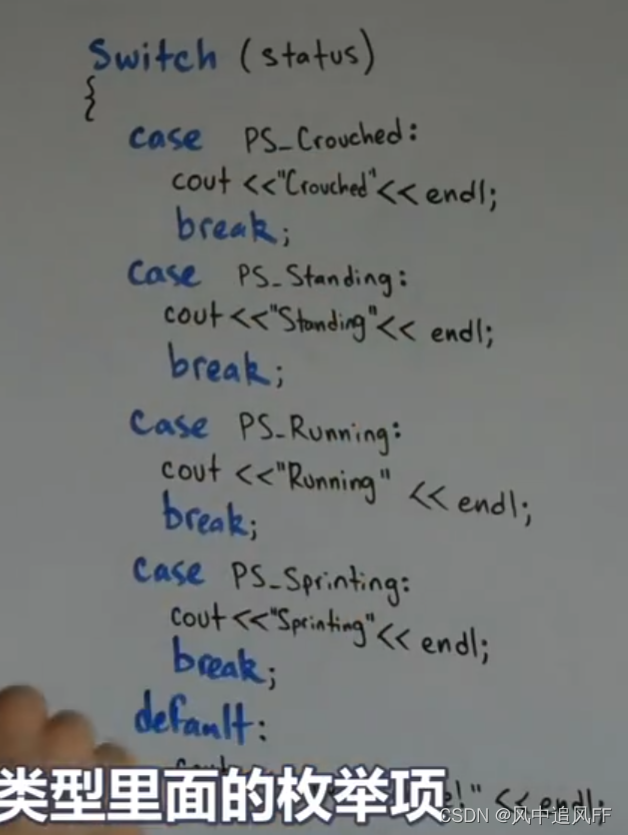 Switch (status)
{
case PS_Crouched:
cout <<"Crouched"<< endl;
break;
case PS_Standing:
cout <<"Standing"<< endl;
break;
case PS_Running:
cout <<"Running" << endl;
break;
case PS_Sprinting:
cout <<"Sprinting"<< endl;
break;
default:
!" << endl;
类型里面的枚举项
CSDN @风中追风FF